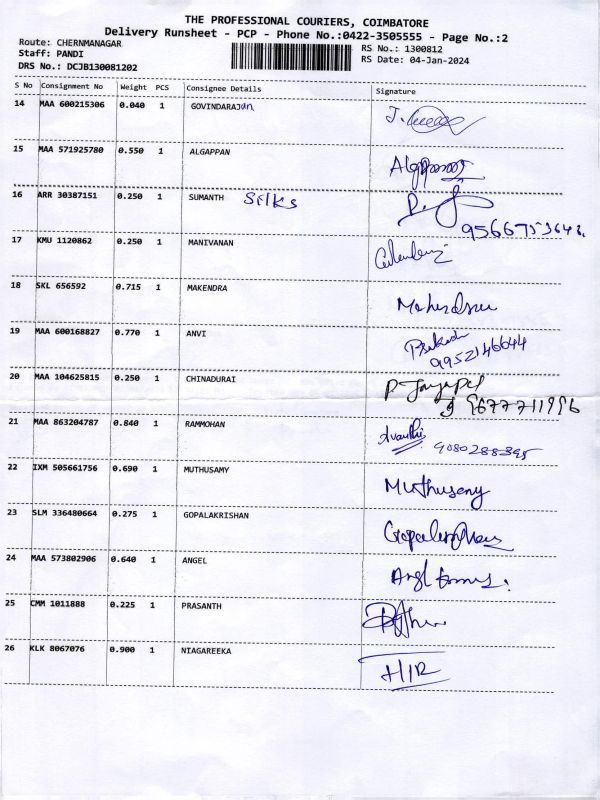 THE PROFESSIONAL COURIERS, COIMBATORE
Delivery Runsheet - PCP - Phone No.:0422-3505555 - Page No.:2
Route: CHERNMANAGAR
Staff: PANDI
DRS No.: DCJB130081202
RS No.: 1300812
RS Date: 04-Jan-2024
S No Consignment No Weight PCS Consignee Details Signature
14 MAA 600215306 0.040 1 GOVINDARAJan J.
15 MAA 571925780 0.550 1 ALGAPPAN
16 ARR 30387151 0.250 1 SUMANTH SILKS
9566753648.
17 KMU 1120862 0.250 1 MANIVANAN
18 SKL 656592 0.715 1 MAKENDRA
19 MAA 600168827 0.770 1 ANVI Prakash
9952146644
20 MAA 104625815 0.250 1 CHINADURAI
9677711996
21 MAA 863204787 0.840 1 RAMMOHAN
9080288395
22 IXM 505661756 0.690 1 MUTHUSAMY Muthusamy
23 SLM 336480664 0.275 1 GOPALAKRISHAN
24 MAA 573802906 0.640 1 ANGEL
25 CMM 1011888 0.225 1 PRASANTH
26 KLK 8067076 0.900 1 NIAGAREEKA